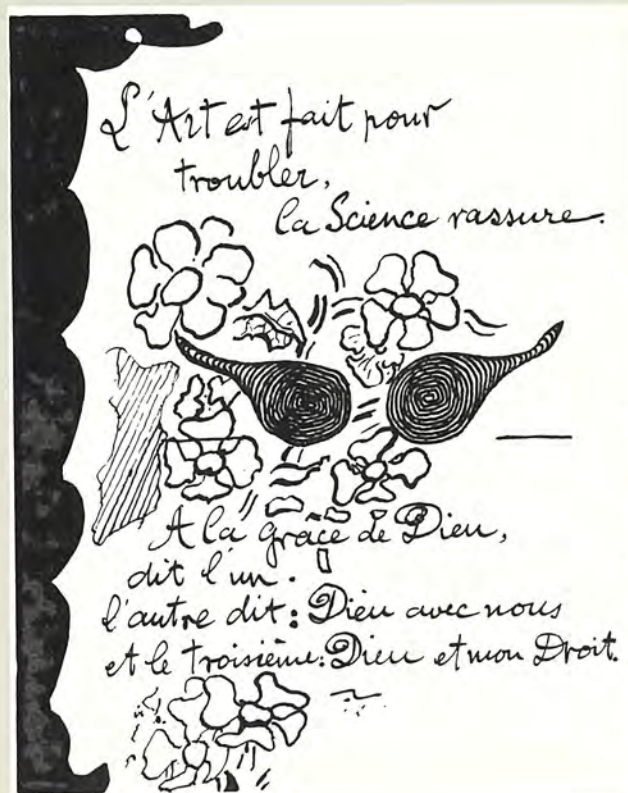 L'Art est fait pour
troubler,
la Science rassure.
A la grâce de Dieu,
dit l'un.
l'autre dit: Dieu avec nous
et le troisième: Dieu et mon Droit.